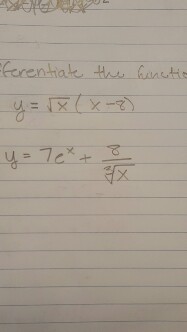 ferentiate the functi
y = √x ( x - 8)
y = 7eˣ + 8/∛x